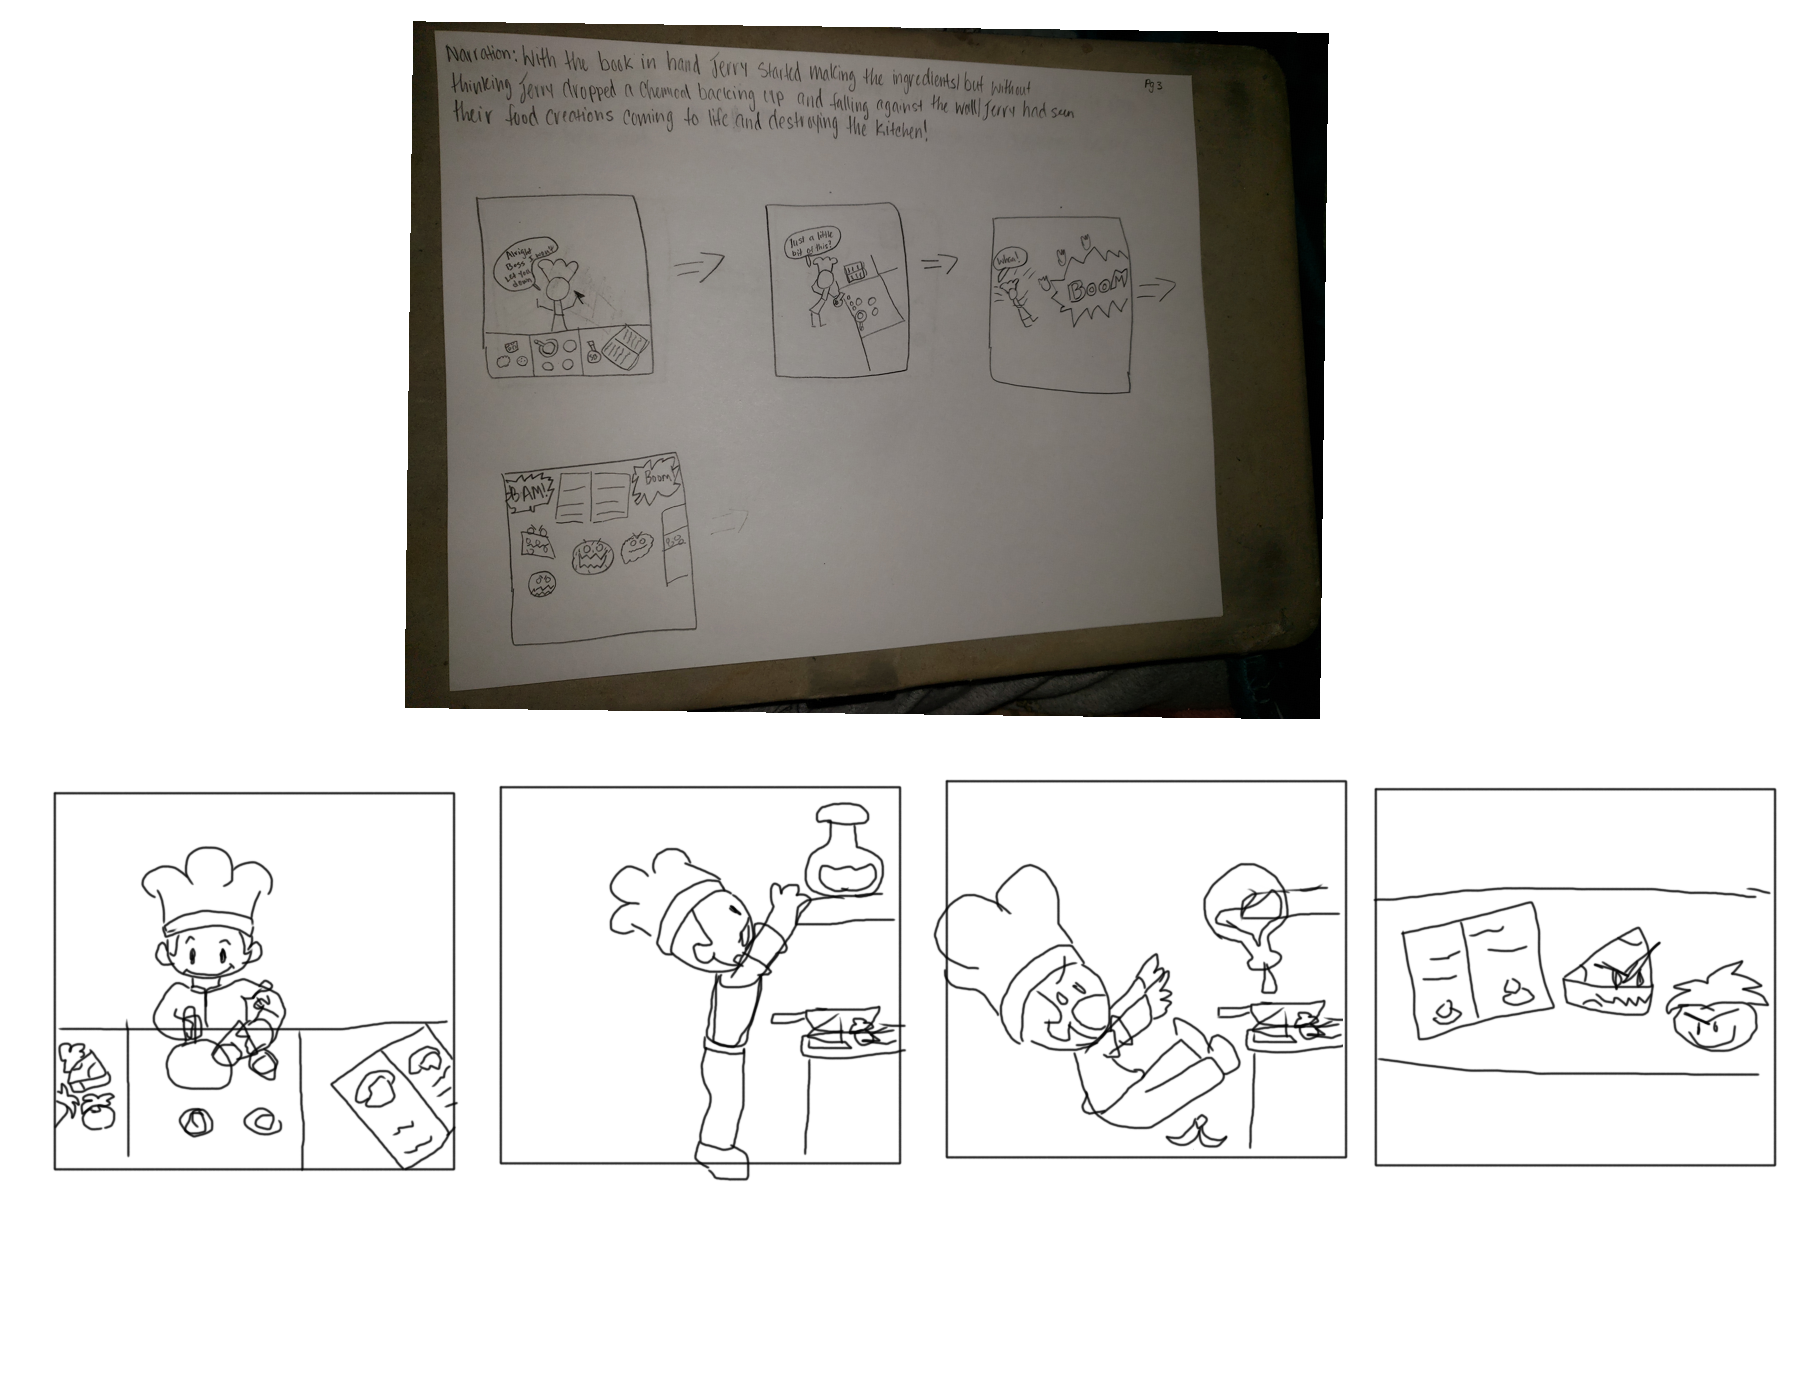 Narration: With the book in hand Jerry started making the ingredients/but without
Pg 3
thinking Jerry dropped a chemical backing up and falling against the wall/Jerry had seen
their food creations coming to life and destroying the kitchen!
Alright
Boss I won't
Let you
down
Just a little
bit of this?
Whoa!
BOOM
BAM!
Boom!